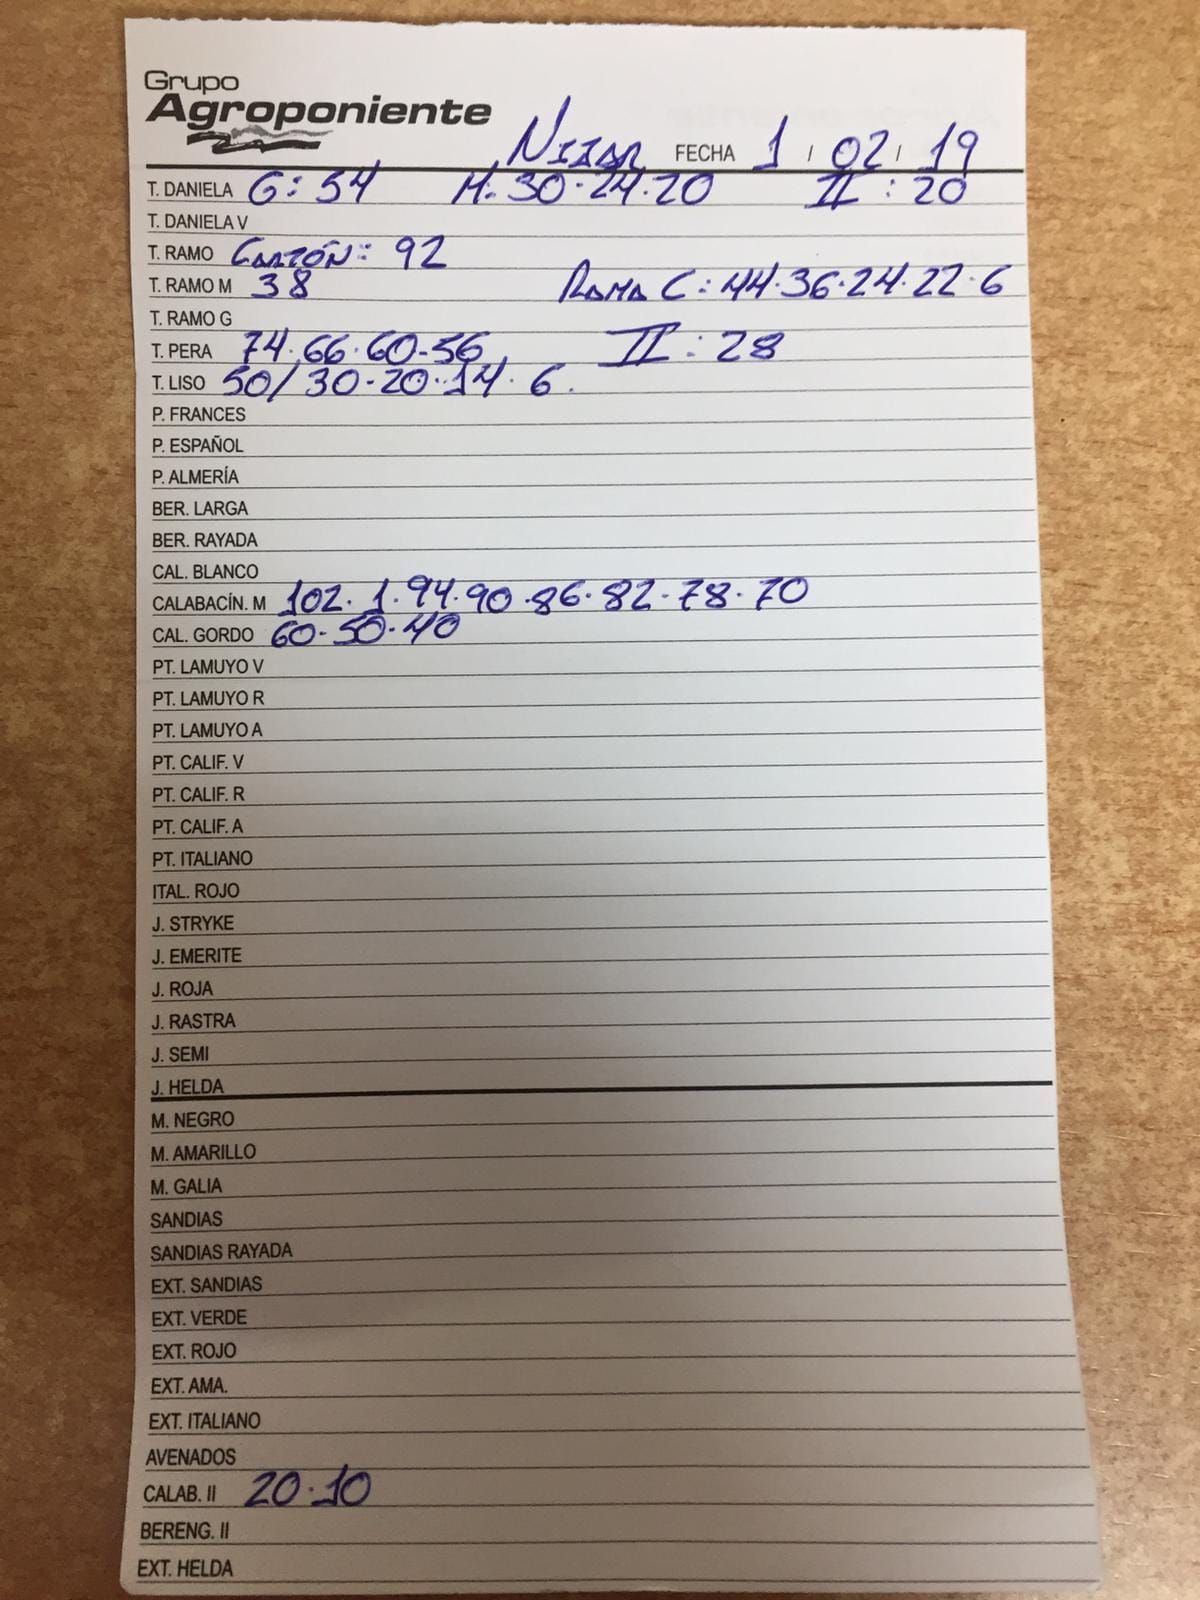 Grupo
Agroponiente
NIJAR FECHA 1 / 02 / 19
T. DANIELA G: 54 M: 30·24·20 II : 20
T. DANIELA V
T. RAMO CARTÓN: 92
T. RAMO M 38 RAMA C: 44·36·24·22·6
T. RAMO G
T. PERA 74·66·60-56 II : 28
T. LISO 50/30-20·14·6.
P. FRANCES
P. ESPAÑOL
P. ALMERÍA
BER. LARGA
BER. RAYADA
CAL. BLANCO
CALABACÍN. M 102·1·94·90·86·82·78·70
CAL. GORDO 60·50·40
PT. LAMUYO V
PT. LAMUYO R
PT. LAMUYO A
PT. CALIF. V
PT. CALIF. R
PT. CALIF. A
PT. ITALIANO
ITAL. ROJO
J. STRYKE
J. EMERITE
J. ROJA
J. RASTRA
J. SEMI
J. HELDA
M. NEGRO
M. AMARILLO
M. GALIA
SANDIAS
SANDIAS RAYADA
EXT. SANDIAS
EXT. VERDE
EXT. ROJO
EXT. AMA.
EXT. ITALIANO
AVENADOS
CALAB. II 20·10
BERENG. II
EXT. HELDA